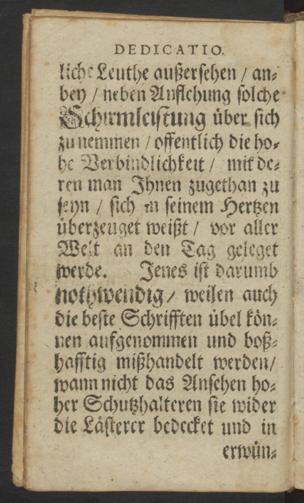 DEDICATIO.
liche Leuthe außersehen / an-
bey / neben Anflehung solche
Schirmleistung über sich
zu nemmen / offentlich die ho-
he Verbindlichkeit / mit de-
ren man Ihnen zugethan zu
seyn / sich in seinem Hertzen
überzeuget weißt / vor aller
Welt an den Tag geleget
werde. Jenes ist darumb
nothwendig / weilen auch
die beste Schrifften übel kön-
nen aufgenommen und boß-
hafftig mißhandelt werden /
wann nicht das Ansehen ho-
her Schutzhalteren sie wider
die Lästerer bedecket und in
erwün-